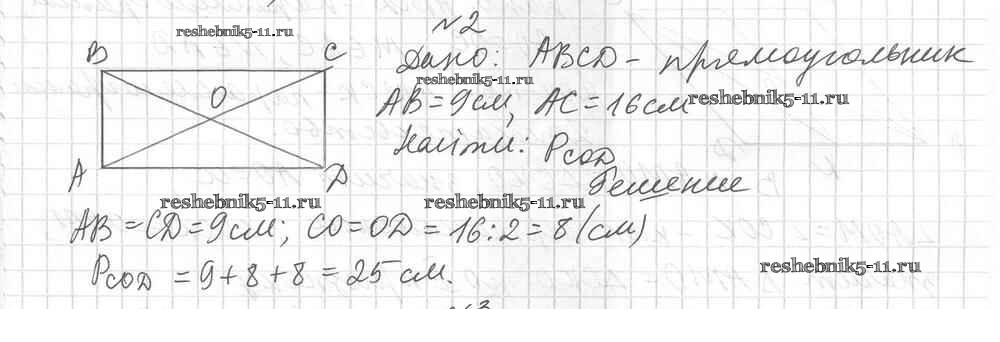 №2
reshebnik5-11.ru
B C
Дано: ABCD - прямоугольник
reshebnik5-11.ru
O
AB = 9 см, AC = 16 см reshebnik5-11.ru
Найти: PCOD
A D
Решение
reshebnik5-11.ru reshebnik5-11.ru
AB = CD = 9 см; CO = OD = 16 : 2 = 8 (см)
PCOD = 9 + 8 + 8 = 25 см.
reshebnik5-11.ru